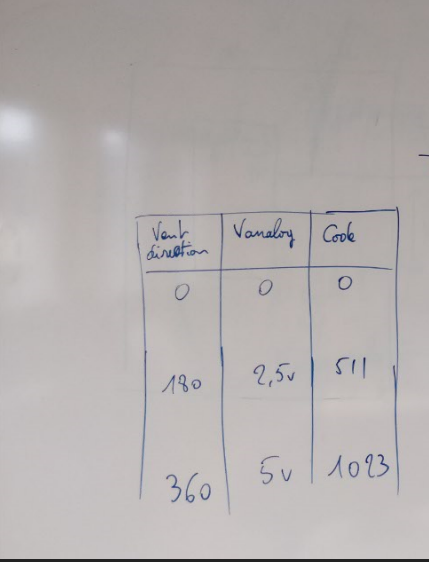 Vent direction Vanalog Code
0 0 0
180 2,5v 511
360 5v 1023